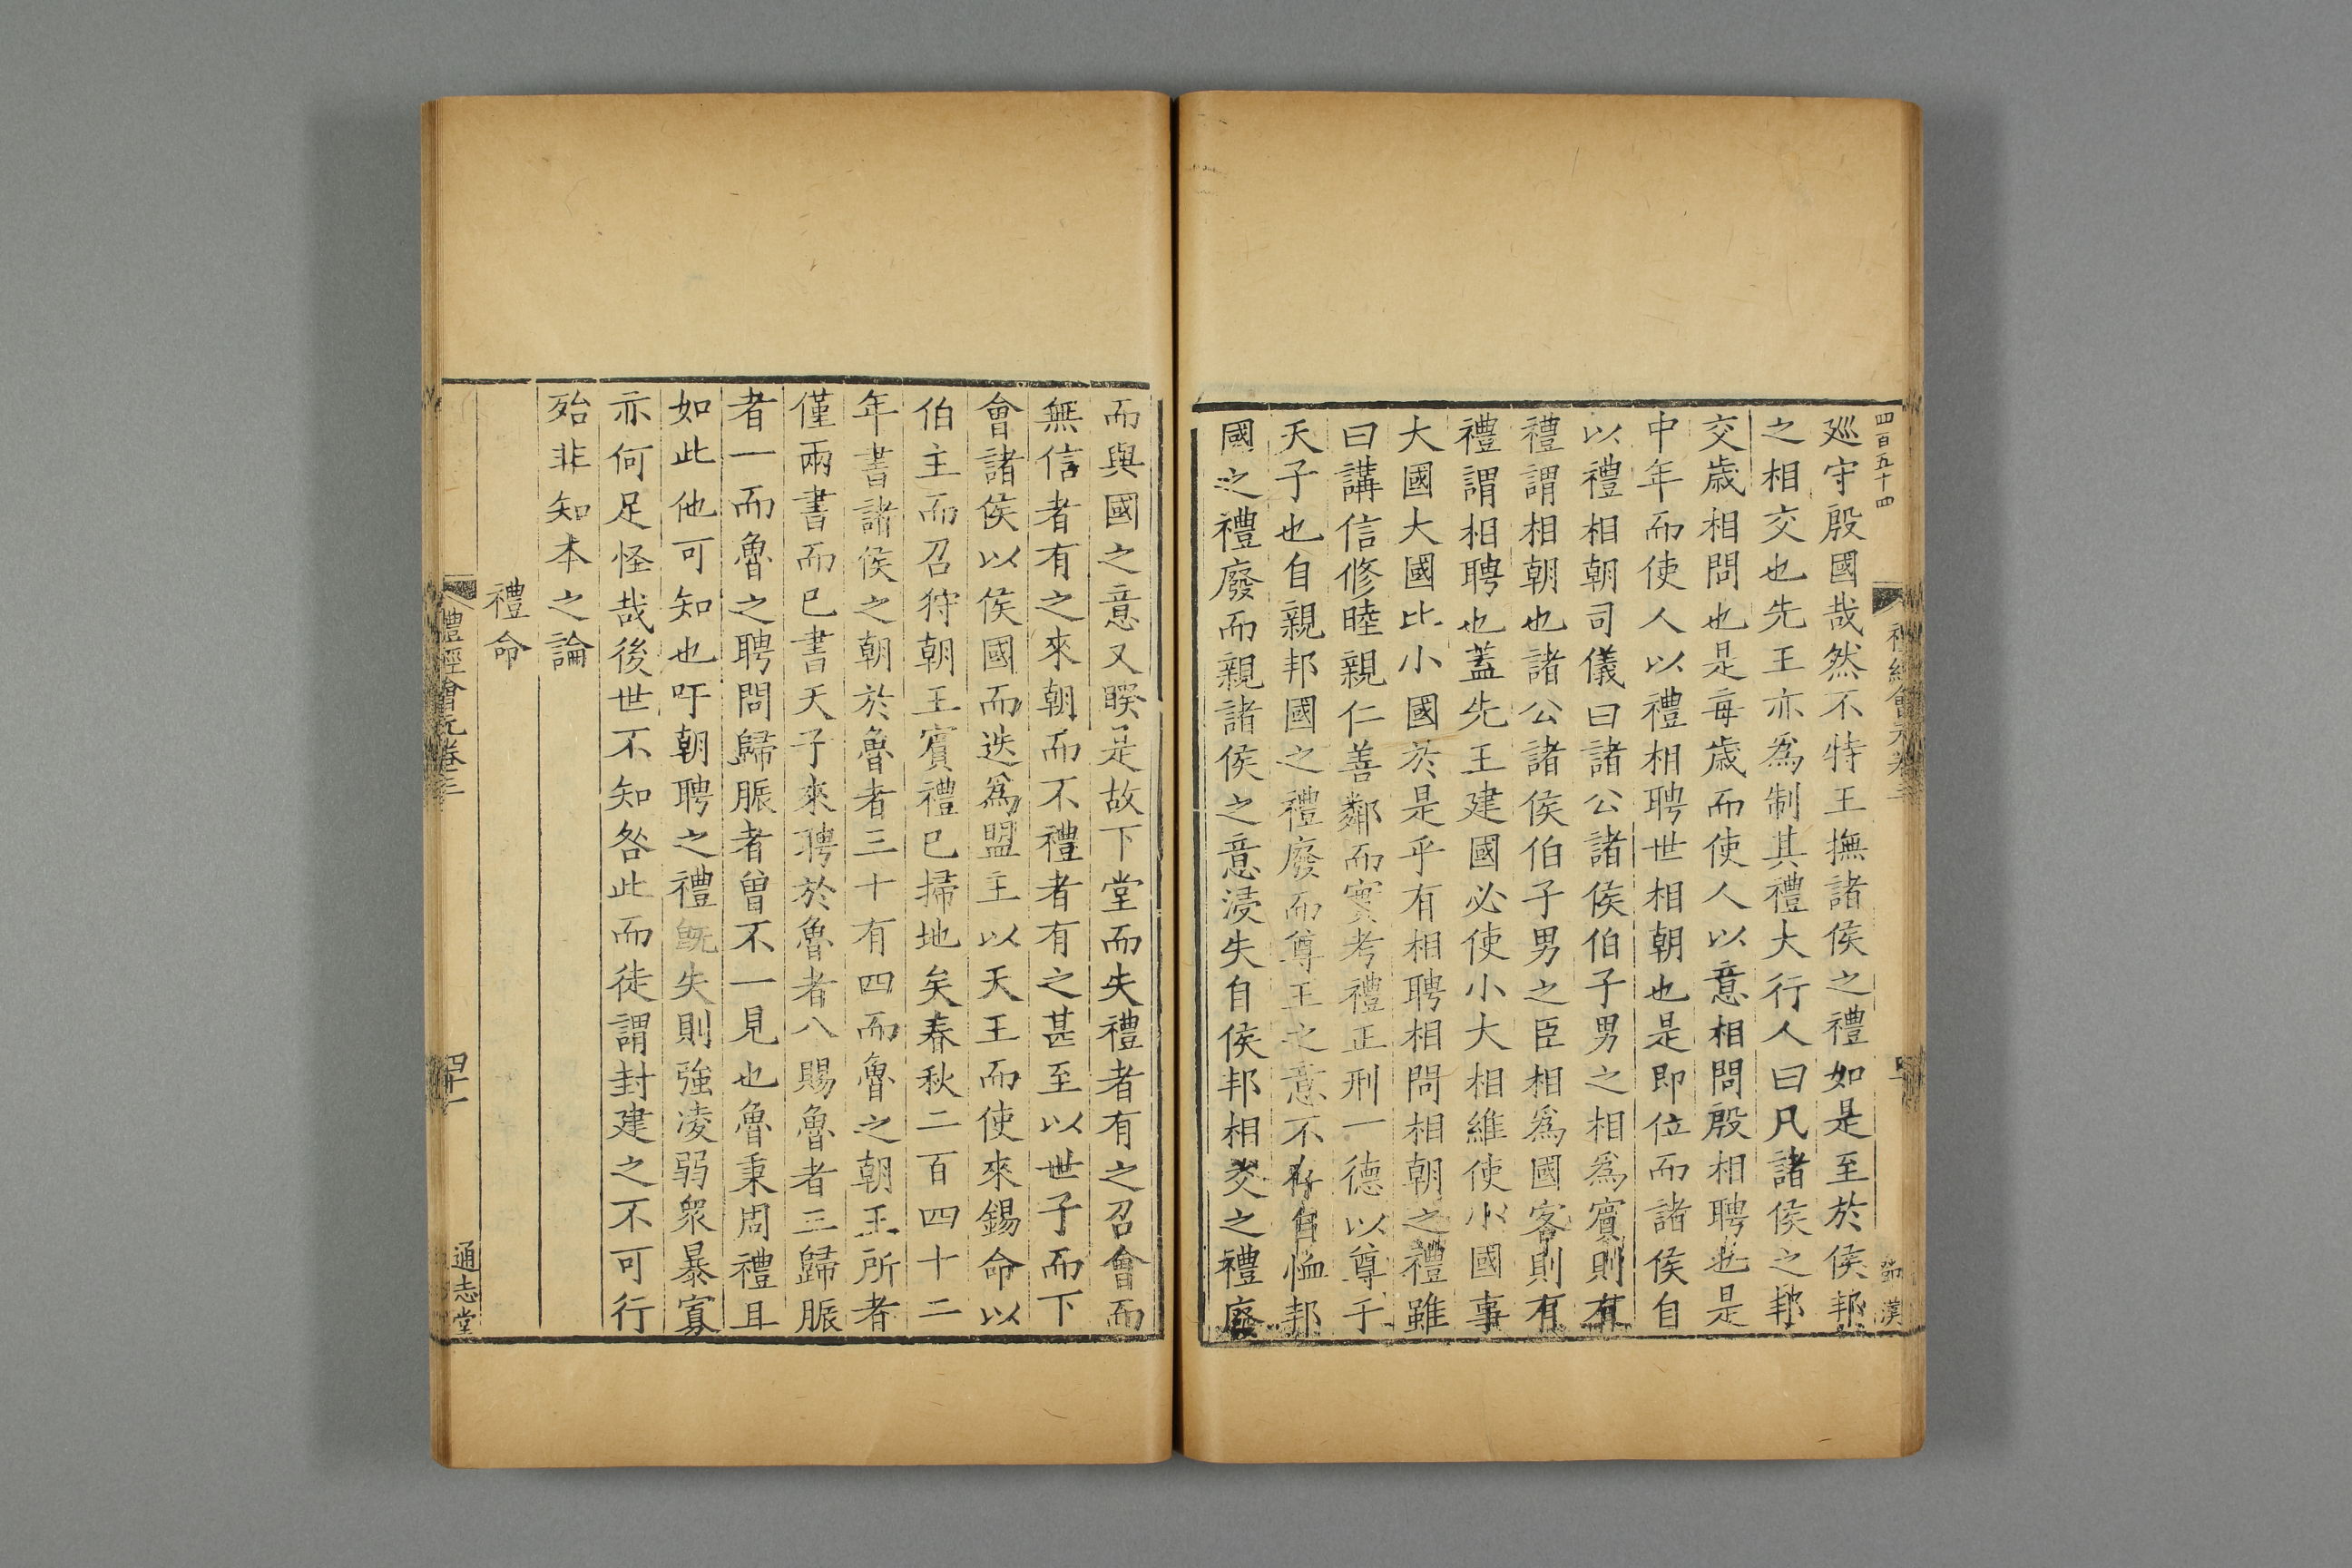 四百五十四
廵守殷國哉然不特王撫諸侯之禮如是至於侯邦
之相交也先王亦爲制其禮大行人曰凡諸侯之邦
交歲相問也是每歲而使人以意相問殷相聘也是
中年而使人以禮相聘世相朝也是即位而諸侯自
以禮相朝司儀曰諸公諸侯伯子男之相爲賓則有
禮謂相朝也諸公諸侯伯子男之臣相爲國客則有
禮謂相聘也蓋先王建國必使小大相維使小國事
大國大國比小國於是乎有相聘相問相朝之禮雖
曰講信修睦親仁善鄰而實考禮正刑一德以尊于
天子也自親邦國之禮廢而尊王之意不存自恤邦
國之禮廢而親諸侯之意浸失自侯邦相交之禮廢
而與國之意又睽是故下堂而失禮者有之召會而
無信者有之來朝而不禮者有之甚至以世子而下
會諸侯以侯國而迭爲盟主以天王而使來錫命以
伯主而召狩朝王賓禮已掃地矣春秋二百四十二
年書諸侯之朝於魯者三十有四而魯之朝王所者
僅兩書而已書天子來聘於魯者八賜魯者三歸脤
者一而魯之聘問歸脤者曾不一見也魯秉周禮且
如此他可知也吁朝聘之禮既失則強凌弱衆暴寡
亦何足怪哉後世不知咎此而徒謂封建之不可行
殆非知本之論
禮命
禮經會元卷三
四十一
通志堂